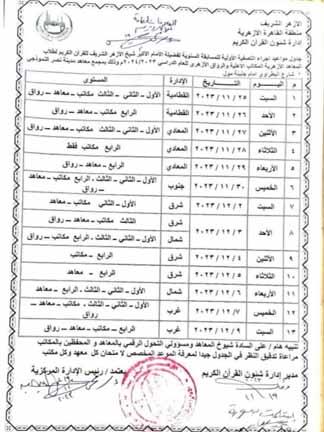 الأزهر الشريف
منطقة القاهرة الأزهرية
إدارة شئون القرآن الكريم
جدول مواعيد إجراء التصفية الأولية للمسابقة السنوية لفضيلة الإمام الأكبر شيخ الأزهر الشريف للقرآن الكريم لطلاب
المعاهد الأزهرية المكاتب الأهلية والرواق الأزهري للعام الدراسي ٢٠٢٤/٢٠٢٣م وذلك بمجمع معاهد مدينة نصر النموذجي
م اليوم التاريخ الإدارة المستوى
١ السبت ٢٠٢٣/١١/٢٥ القطامية الأول ــ الثاني ــ الثالث مكاتب ــ معاهد ــ رواق
٢ الأحد ٢٠٢٣/١١/٢٦ القطامية الرابع مكاتب ــ معاهد ــ رواق
٣ الاثنين ٢٠٢٣/١١/٢٧ المعادي الأول ــ الثاني ــ الثالث مكاتب ــ معاهد ــ رواق
٤ الثلاثاء ٢٠٢٣/١١/٢٨ المعادي الرابع مكاتب فقط
٥ الأربعاء ٢٠٢٣/١١/٢٩ المعادي الرابع معاهد ــ رواق
٦ الخميس ٢٠٢٣/١١/٣٠ جنوب الأول ــ الثاني ــ الثالث ــ الرابع مكاتب ــ معاهد ــ رواق
٧ السبت ٢٠٢٣/١٢/٢ شرق الأول ــ الثاني مكاتب ــ معاهد
٨ الأحد ٢٠٢٣/١٢/٣ شرق الثالث مكاتب ــ معاهد ــ رواق
شمال الأول ــ الثاني ــ الثالث ــ الرابع مكاتب ــ رواق
٩ الاثنين ٢٠٢٣/١٢/٤ شرق الرابع ــ مكاتب
١٠ الثلاثاء ٢٠٢٣/١٢/٥ شرق الرابع ــ معاهد
١١ الأربعاء ٢٠٢٣/١٢/٦ شمال الأول ــ الثاني ــ الثالث ــ الرابع ــ معاهد
١٢ الخميس ٢٠٢٣/١٢/٧ غرب الأول ــ الثاني ــ الثالث مكاتب ــ معاهد ــ رواق
١٣ السبت ٢٠٢٣/١٢/٩ غرب الرابع مكاتب ــ معاهد ــ رواق
تنبيه هام / على السادة شيوخ المعاهد ومسؤولي التحول الرقمي بالمعاهد و المحفظين بالمكاتب
مراعاة تدقيق النظر في الجدول جيدا لمعرفة الموعد المخصص لامتحان كل معهد وكل مكتب
مدير إدارة شئون القرآن الكريم
يعتمد / رئيس الإدارة المركزية